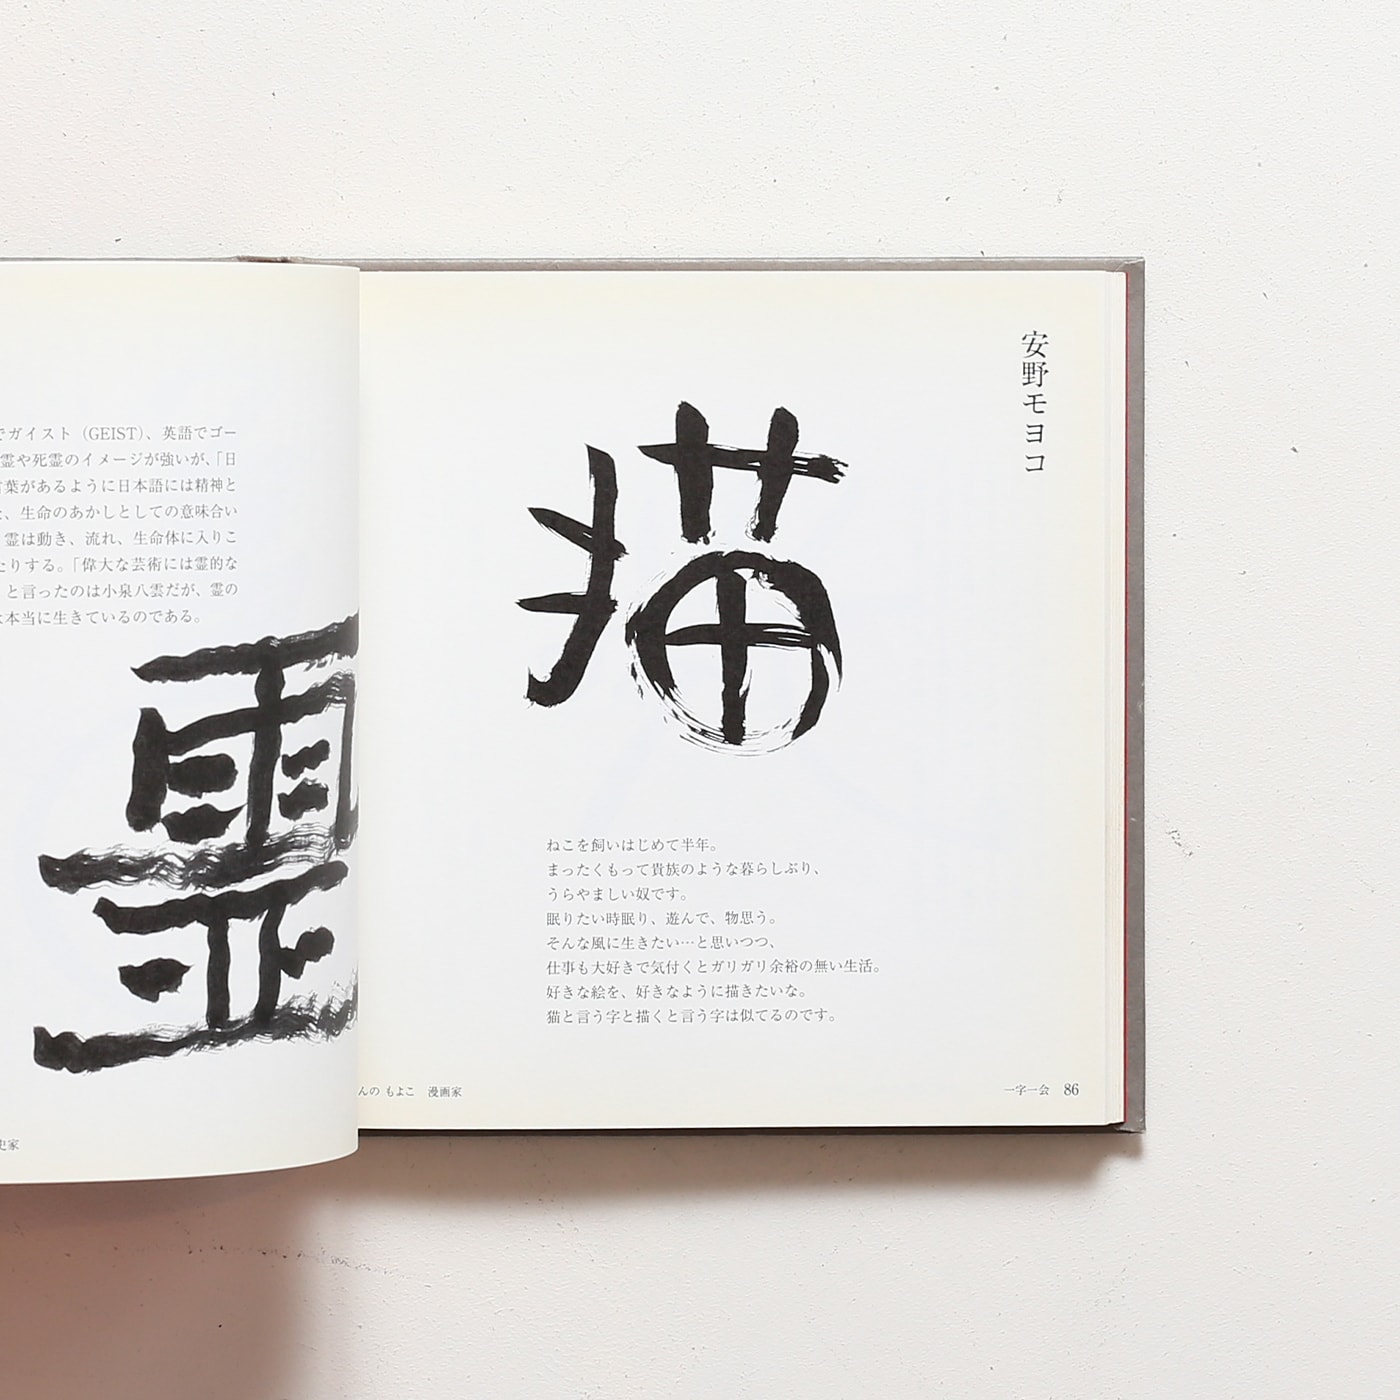 でガイスト（GEIST）、英語でゴー
霊や死霊のイメージが強いが、「日
言葉があるように日本語には精神と
、生命のあかしとしての意味合い
霊は動き、流れ、生命体に入りこ
たりする。「偉大な芸術には霊的な
」と言ったのは小泉八雲だが、霊の
は本当に生きているのである。
霊
史家
安野モヨコ
猫
ねこを飼いはじめて半年。
まったくもって貴族のような暮らしぶり、
うらやましい奴です。
眠りたい時眠り、遊んで、物思う。
そんな風に生きたい…と思いつつ、
仕事も大好きで気付くとガリガリ余裕の無い生活。
好きな絵を、好きなように描きたいな。
猫と言う字と描くと言う字は似てるのです。
んの もよこ　漫画家
一字一会　86